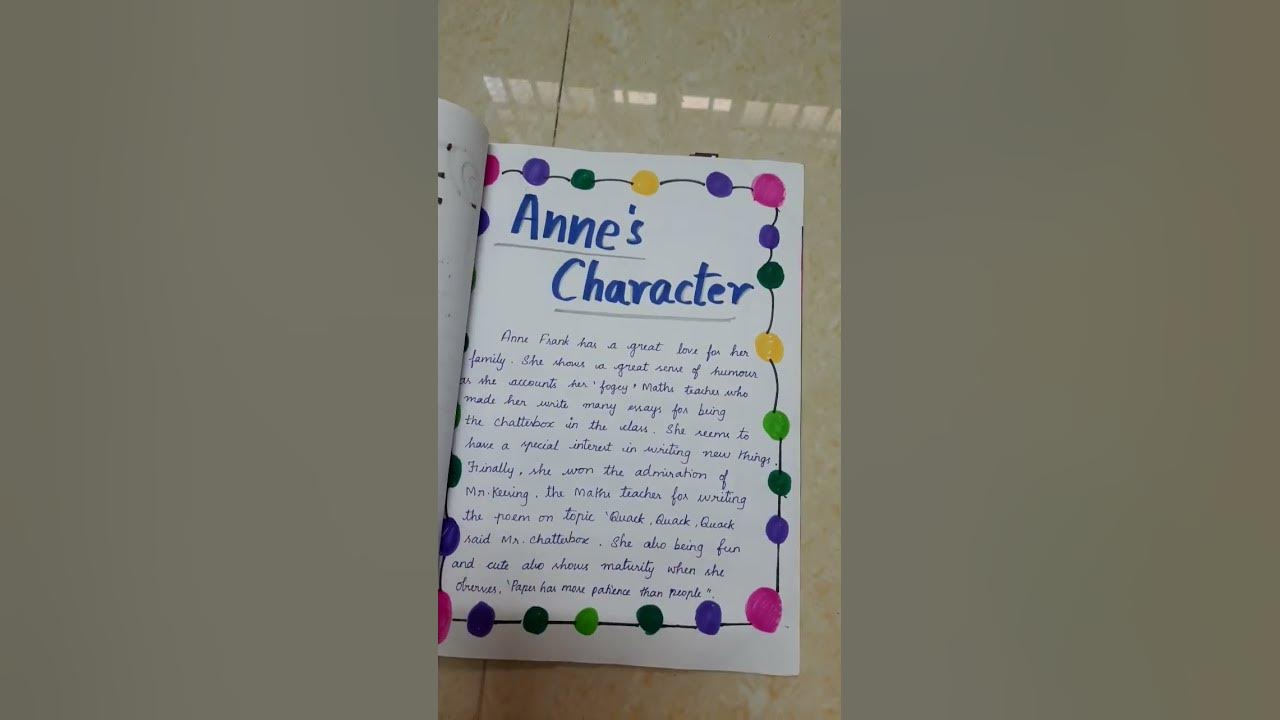 Anne's
Character
Anne Frank has a great love for her
family. She shows a great sense of humour
as she accounts her 'fogey' Maths teacher who
made her write many essays for being
the chatterbox in the class. She seems to
have a special interest in writing new things.
Finally, she won the admiration of
Mr. Keering, the Maths teacher for writing
the poem on topic 'Quack, Quack, Quack
said Mr. Chatterbox. She also being fun
and cute also shows maturity when she
observes, "Paper has more patience than people".